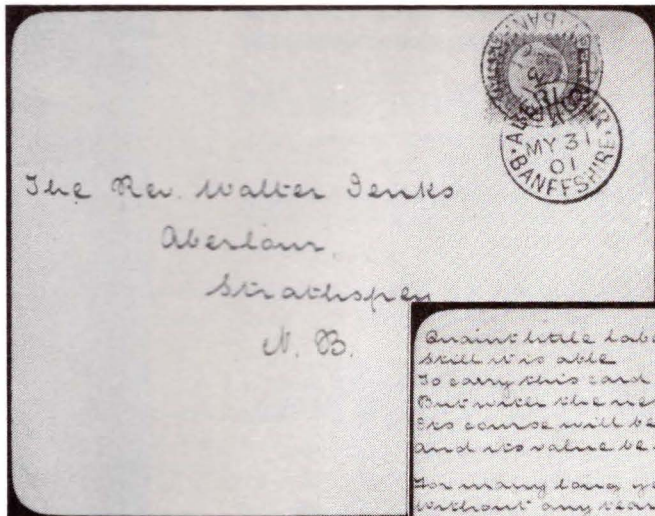 ABERLOUR
MY 31
01
BANFFSHIRE
The Rev. Walter Jenks
Aberlour
Strathspey
N. B.
Quaint little
Still it is able
To carry this card
But with the
Its course will be
And its value be
For many long
Without any